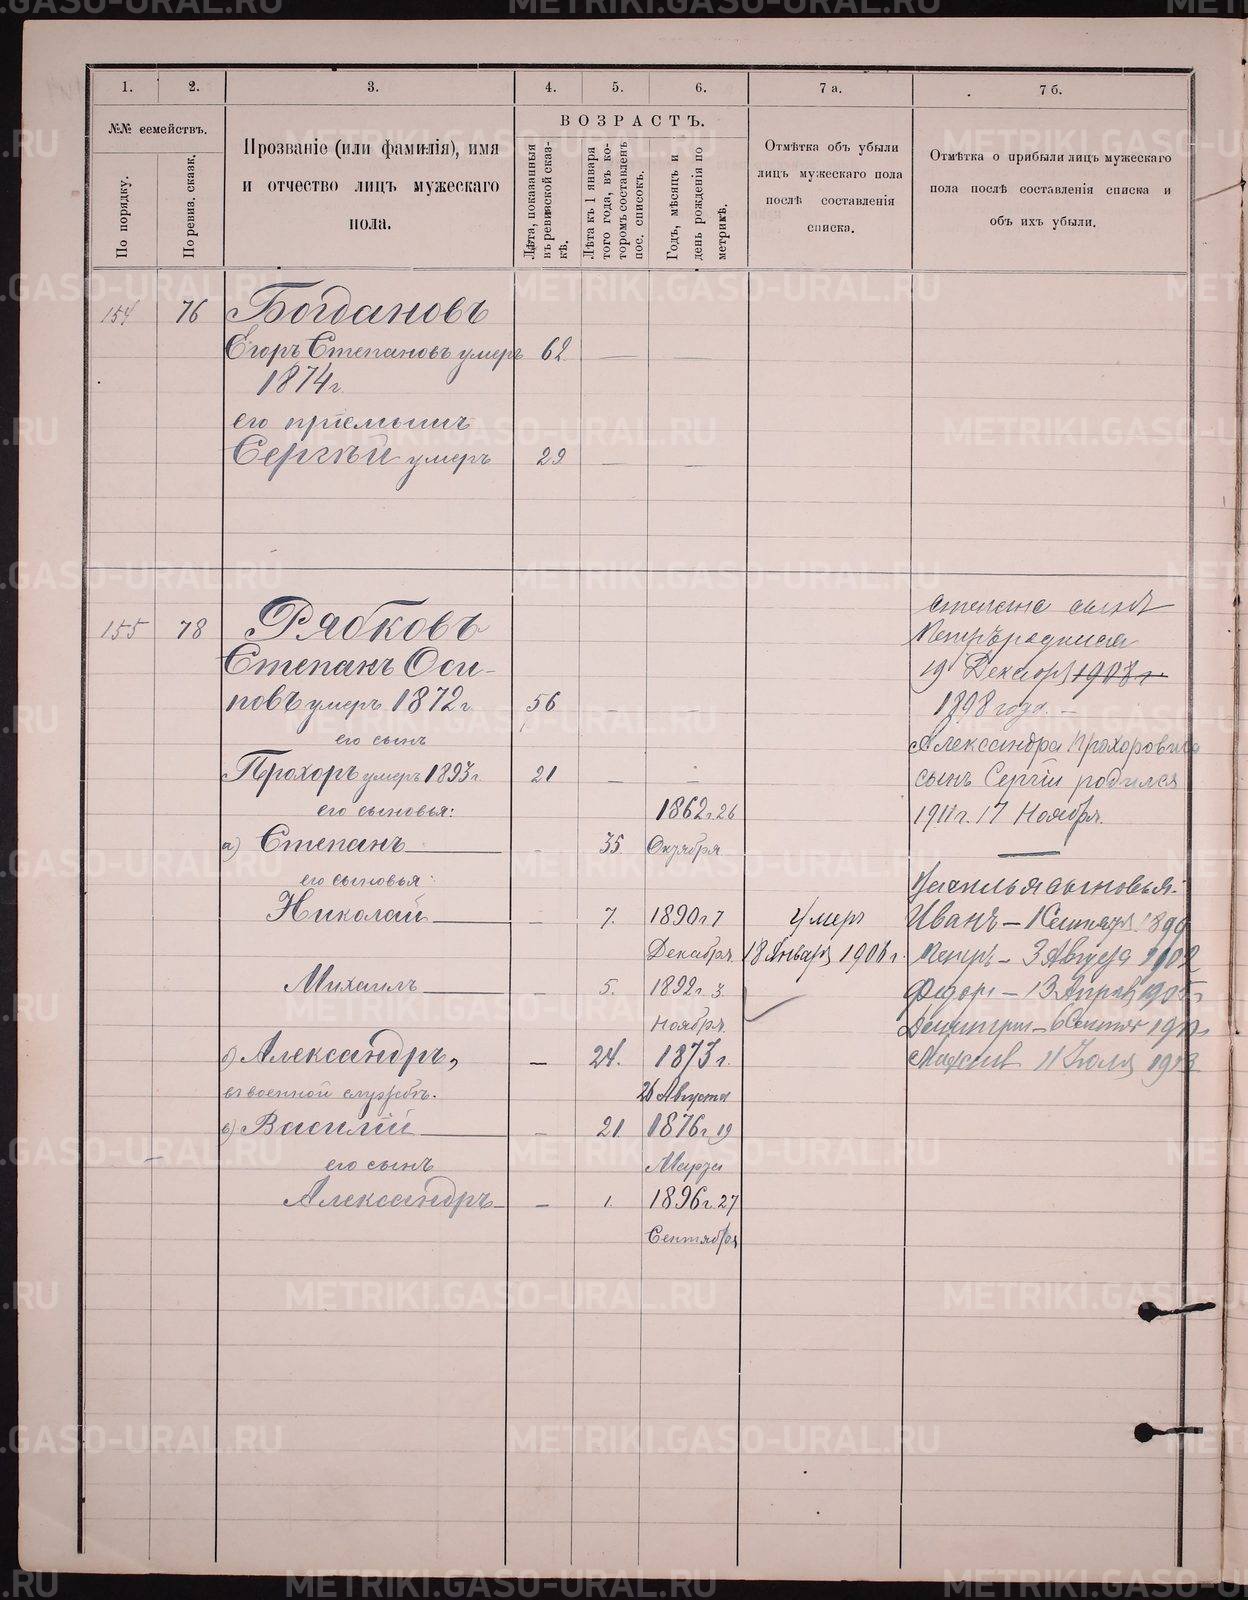 1.
2.
3.
4.
5.
6.
7 а.
7 б.
№№ семействъ.
По порядку.
По ревиз. сказк.
Прозваніе (или фамилія), имя
и отчество лицъ мужескаго
пола.
ВОЗРАСТЪ.
Лѣта, показанныя
въ ревизской сказ-
кѣ.
Лѣта къ 1 января
того года, въ ко-
торомъ составленъ
пос. списокъ.
Годъ, мѣсяцъ и
день рожденія по
метрикѣ.
Отмѣтка объ убыли
лицъ мужескаго пола
послѣ составленія
списка.
Отмѣтка о прибыли лицъ мужескаго
пола послѣ составленія списка и
объ ихъ убыли.
154 76 Богдановъ
Егоръ Степановъ умеръ 62 —
1874 г.
его пріемышъ
Сергѣй умеръ 29 — —
155 78 Рябковъ
Степанъ Оси-
повъ умеръ 1872 г. 56 — —
его сынъ
Прохоръ умеръ 1893 г. 21 — —
его сыновья: 1862 г. 26
а) Степанъ — - 35 Октября
его сыновья:
Николай — - 7. 1890 г 7 Умеръ
Декабря 18 Января 190 г.
Михаилъ — - 5. 1892 г. 3
Ноября.
б) Александръ, — 24. 1873 г.
въ военной службѣ. 26 Августа
в) Василій — - 21. 1876 г. 19
его сынъ Марта
Александръ - — 1. 1896 г. 27
Сентября
Степана сынъ
Петръ родился
19 Декабря 1908 г
1898 года. —
Александра Прохоровича
сынъ Сергій родился
1911 г. 17 Ноября.
Василья сыновья:
Иванъ — 1 Сентября 1899
Петръ — 3 Августа 1902
Федоръ — 13 Апрѣля 1905 г
Димитрій — 6 Сентя
11 Іюля 1913
METRIKI.GASO-URAL.RU